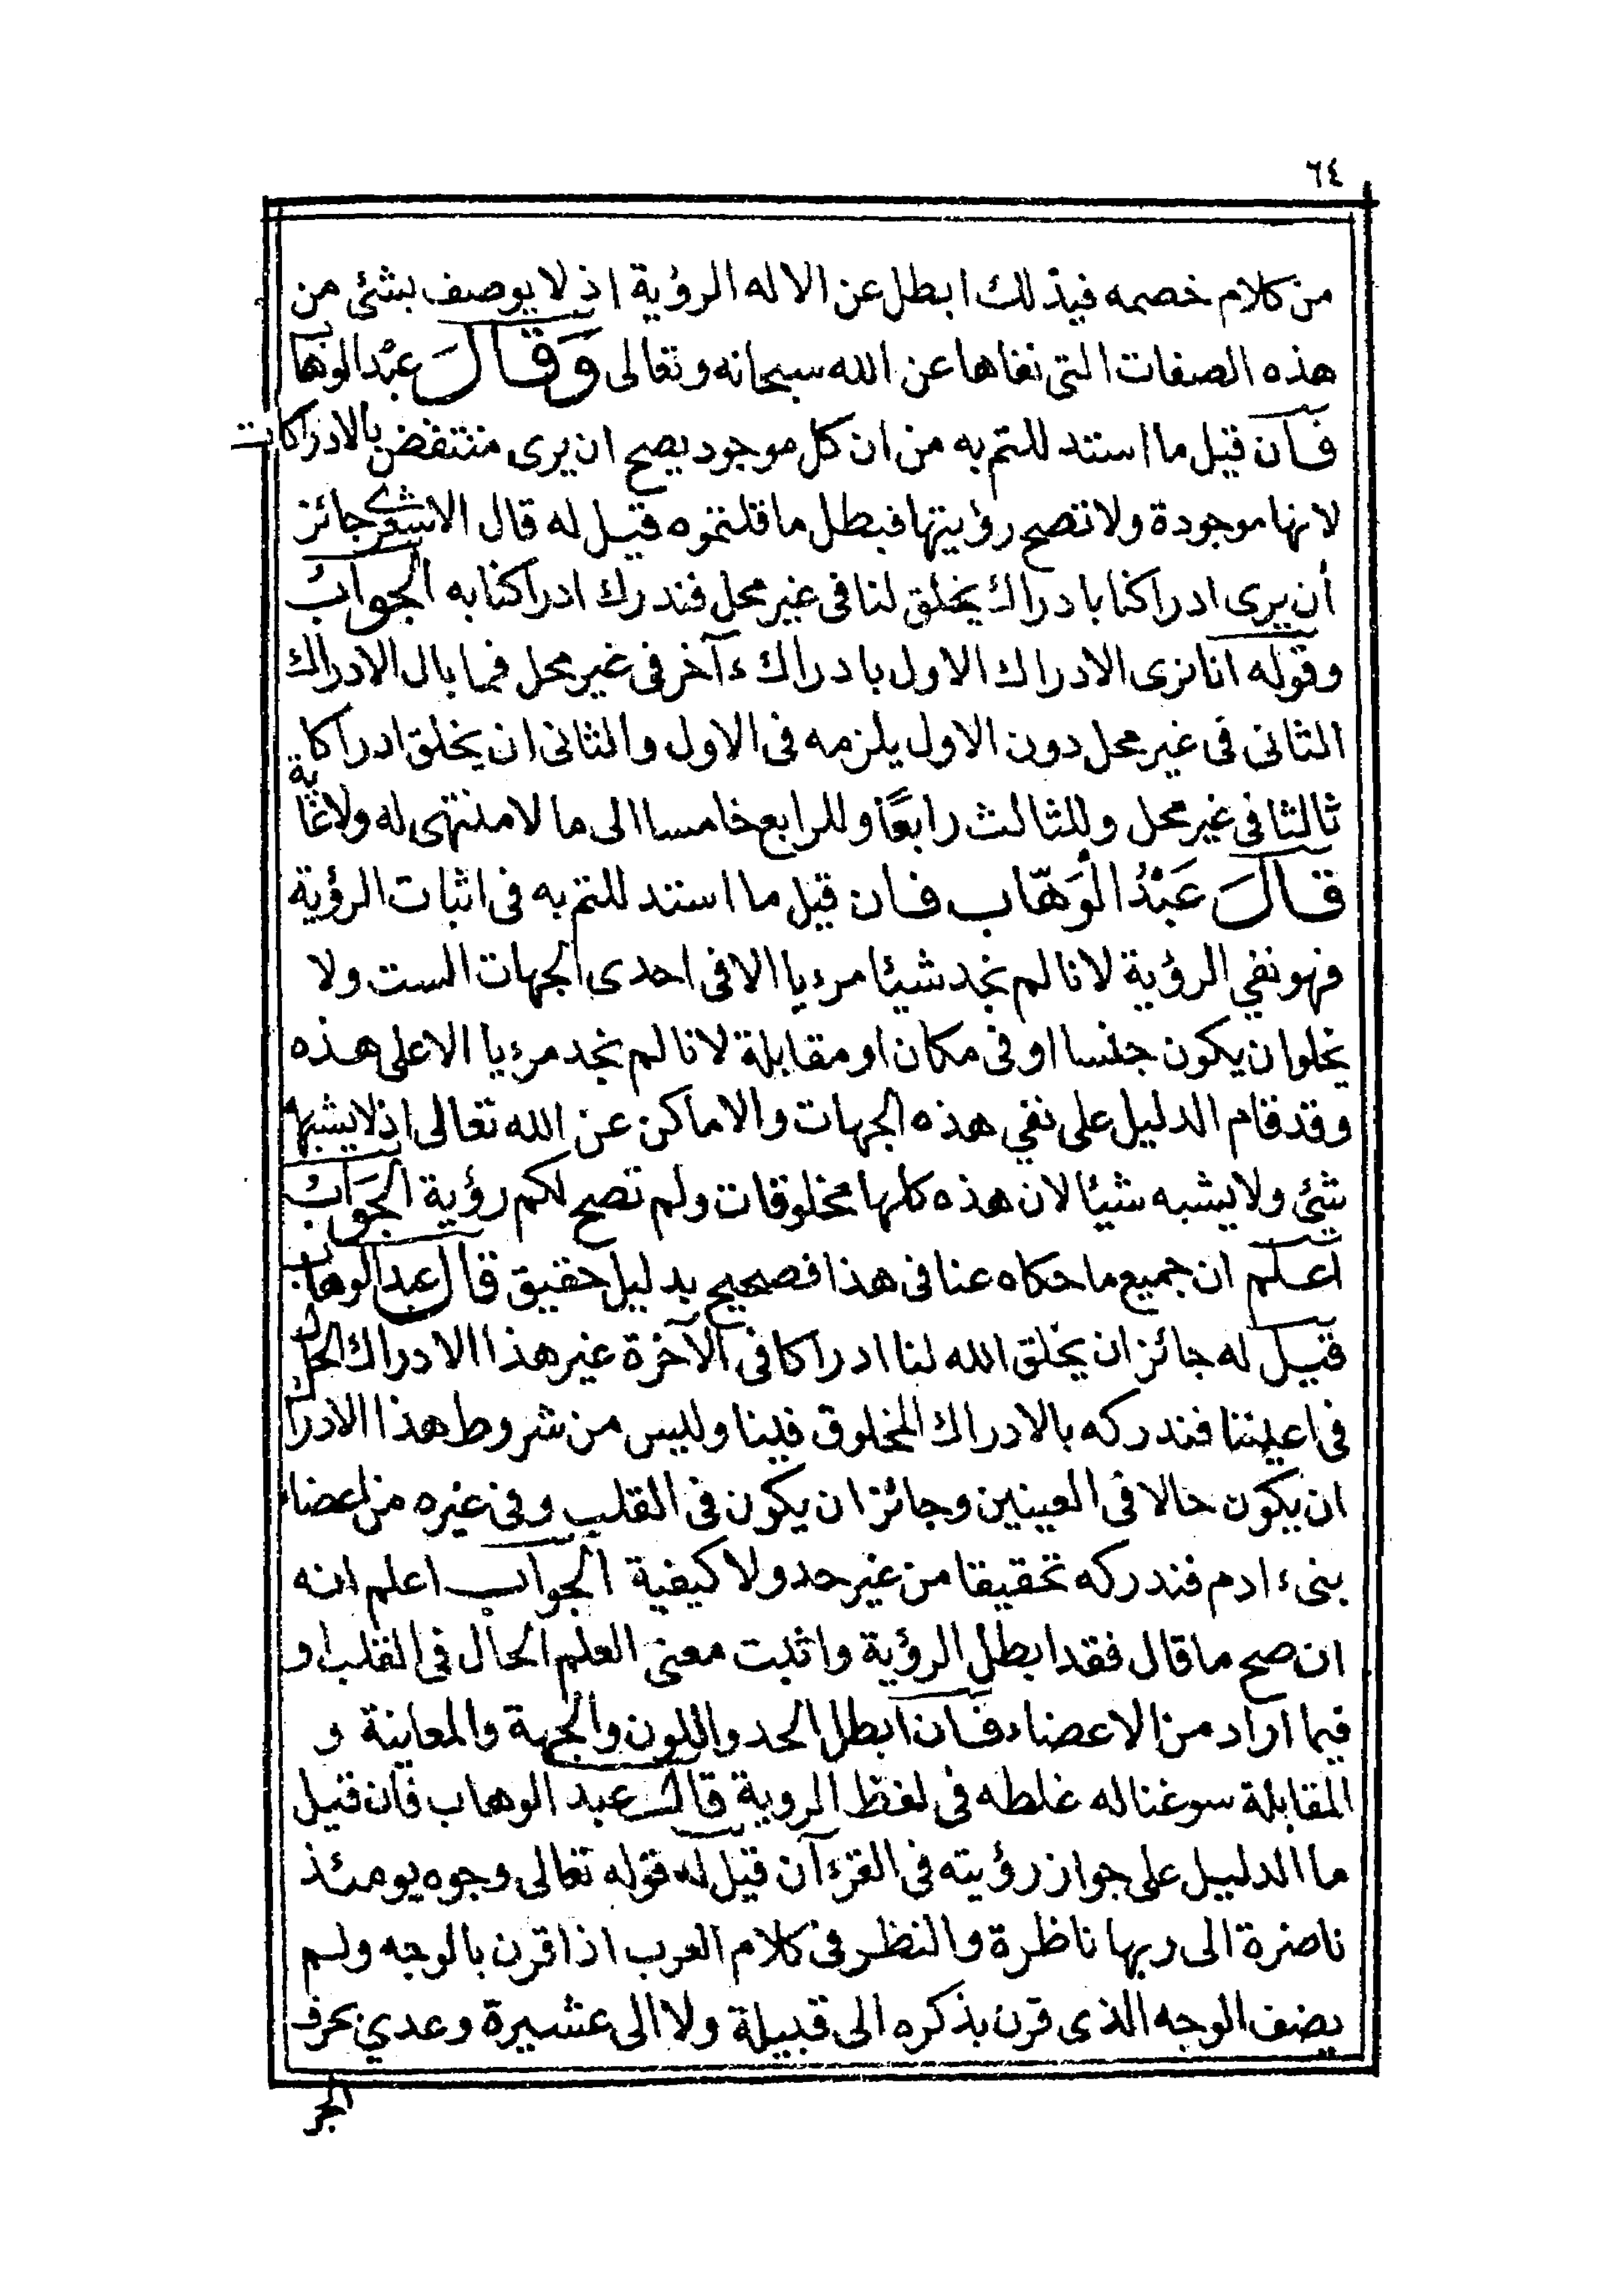 ٦٤
من كلام خصمه فبذلك ابطل عن الاله الرؤية اذ لا يوصف بشئ من
هذه الصفات التى نفاها عن الله سبحانه وتعالى وَقَالَ عبْد الوهاب
فان قيل ما استند للتم به من ان كل موجود يصح ان يرى منتقض بالادراكات
لانها موجودة ولا تصح رؤيتها فبطل ما قلتموه قيل له قال الاشعرى جائز
أن يرى ادراكنا بادراك يخلق لنا فى غير محل فندرك ادراكنا به الجوابُ
وقوله انا نرى الادراك الاول بادراك ءاخر فى غير محل فما بال الادراك
الثانى فى غير محل دون الاول يلزمه فى الاول والثانى ان يخلق ادراكا
ثالثا فى غير محل وللثالث رابعًا وللرابع خامسا الى ما لا منتهى له ولا غاية
قَالَ عَبْدُ الْوَهّاب فان قيل ما استند للتم به فى اثبات الرؤية
فهو نفي الرؤية لانا لم نجد شيئا مرءيا الا فى احدى الجهات الست ولا
يخلو ان يكون جنسا او فى مكان او مقابلة لانا لم نجد مرءيا الا على هذه
وقد قام الدليل على نفي هذه الجهات والاماكن عن الله تعالى اذ لا يشبهه
شئ ولا يشبه شيئا لان هذه كلها مخلوقات ولم تصح لكم رؤية الجَوَابُ
اعلم ان جميع ما حكاه عنا فى هذا فصحيح بدليل حقيق قال عبد الوهاب
قيل له جائز ان يخلق الله لنا ادراكا فى الآخرة غير هذا الادراك الحال
فى اعيننا فندركه بالادراك المخلوق فينا وليس من شروط هذا الادراك
ان يكون حالا فى العينين وجائز ان يكون فى القلب وفى غيره من اعضاء
بنىء ادم فندركه تحقيقا من غير حد ولا كيفية الجواب اعلم انه
ان صح ما قال فقد ابطل الرؤية واثبت معنى العلم الحال فى القلب او
فيما اراد من الاعضاء فان ابطل الحد واللون والجهة والمعاينة و
المقابلة سوغنا له غلطه فى لفظ الروية قال عبد الوهاب فان قيل
ما الدليل على جواز رؤيته فى القرءآن قيل له قوله تعالى وجوه يومئذ
ناضرة الى ربها ناظرة والنظر فى كلام العرب اذا قرن بالوجه ولم
يضف الوجه الذى قرن بذكره الى قبيلة ولا الى عشيرة وعدي بحرف
الجر